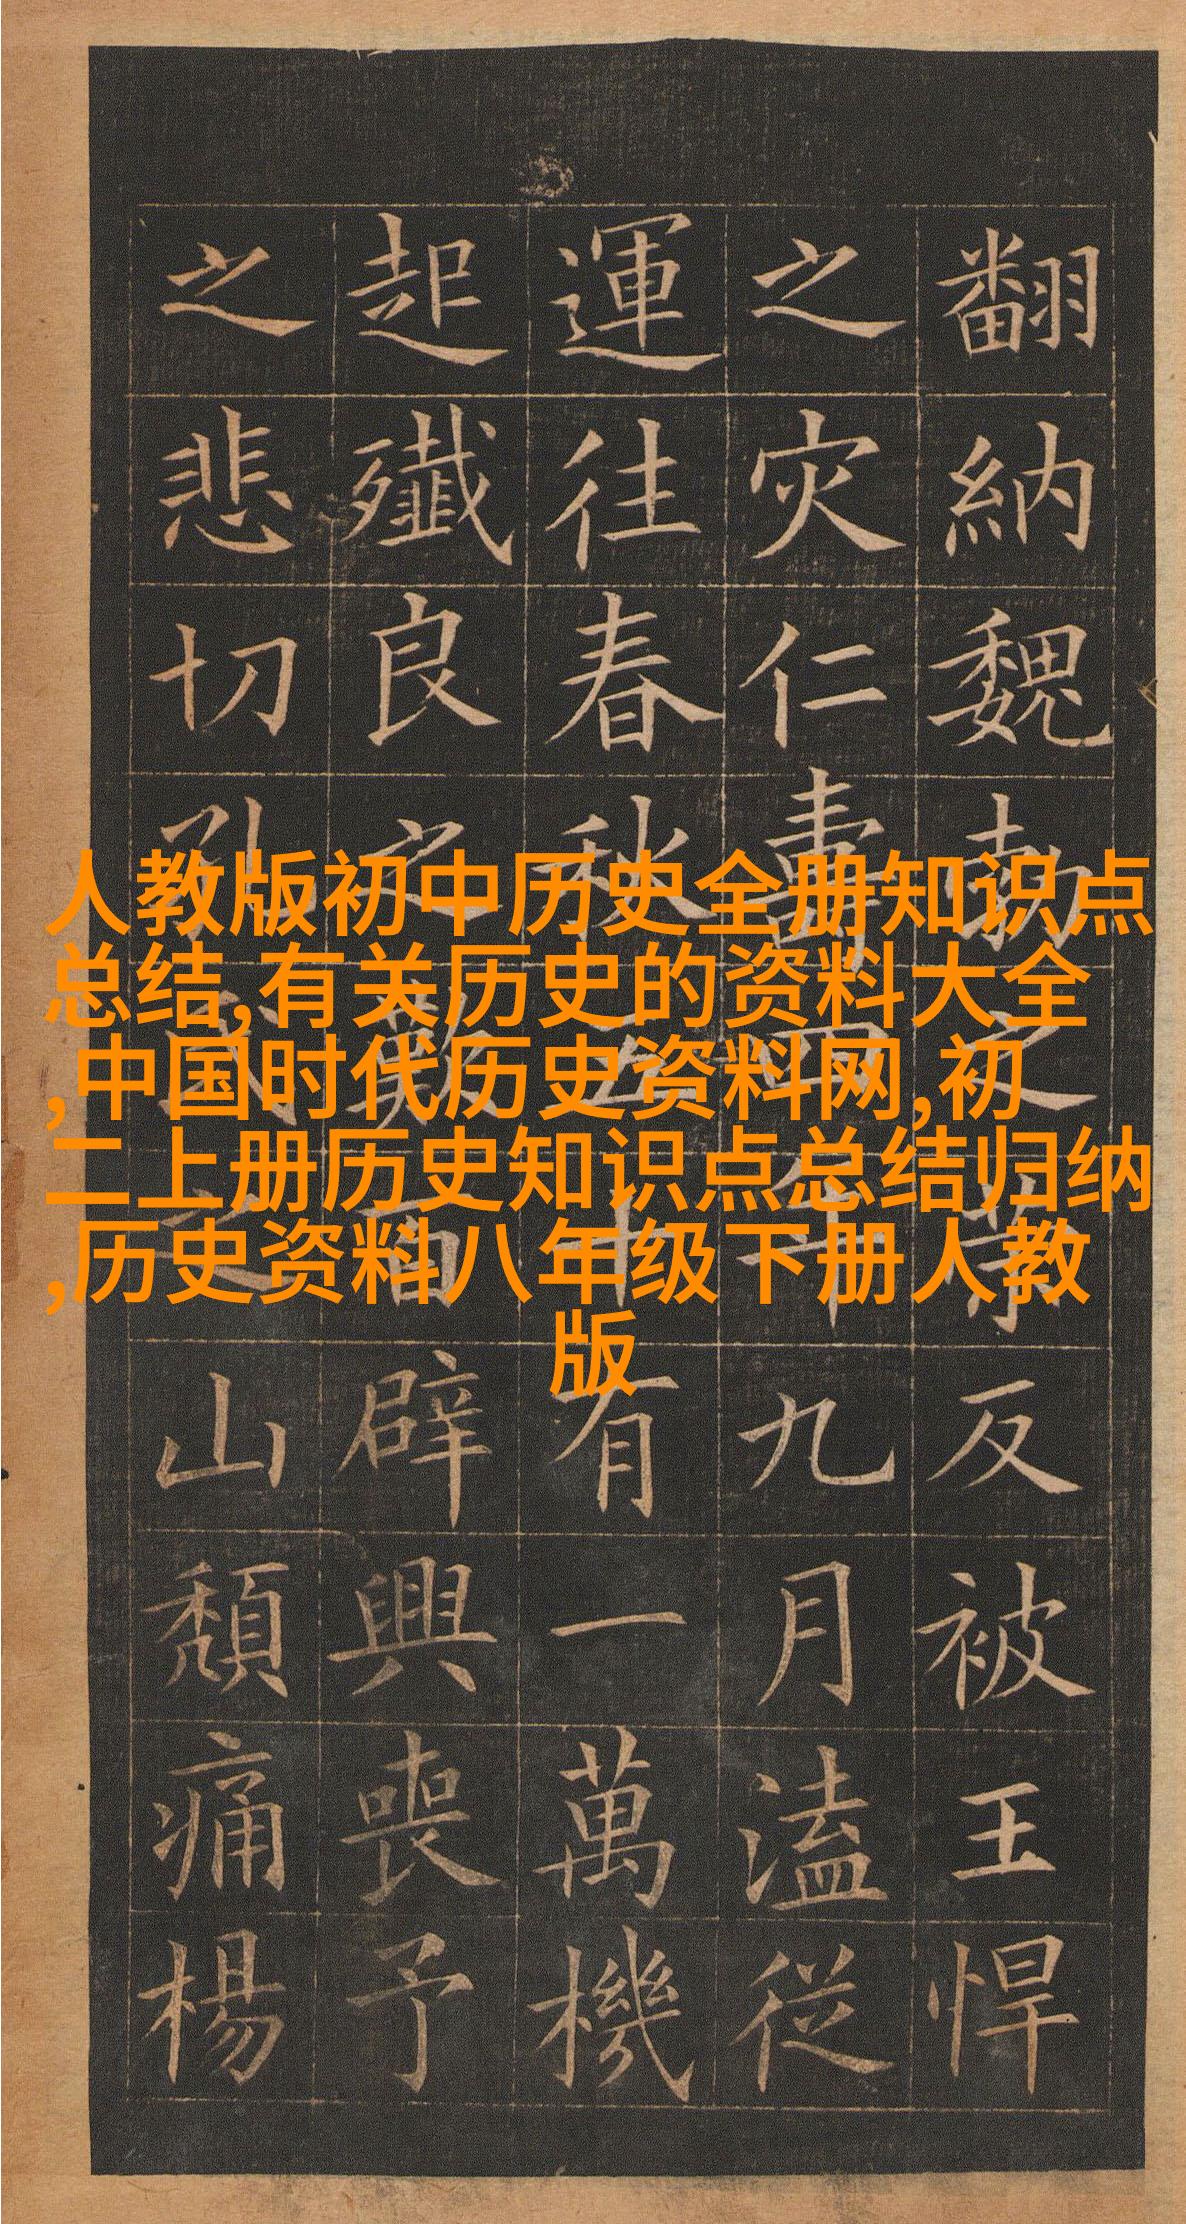 人教版初中历史全册知识点
总结,有关历史的资料大全
,中国时代历史资料网,初
二上册历史知识点总结归纳
,历史资料八年级下册人教
版
翻納魏勃之反被王悍
之灾仁壽四年九月溘從
運往春秋五十有一萬機
起殲良之歎百辟興喪予
之悲切孔之山頹痛楊